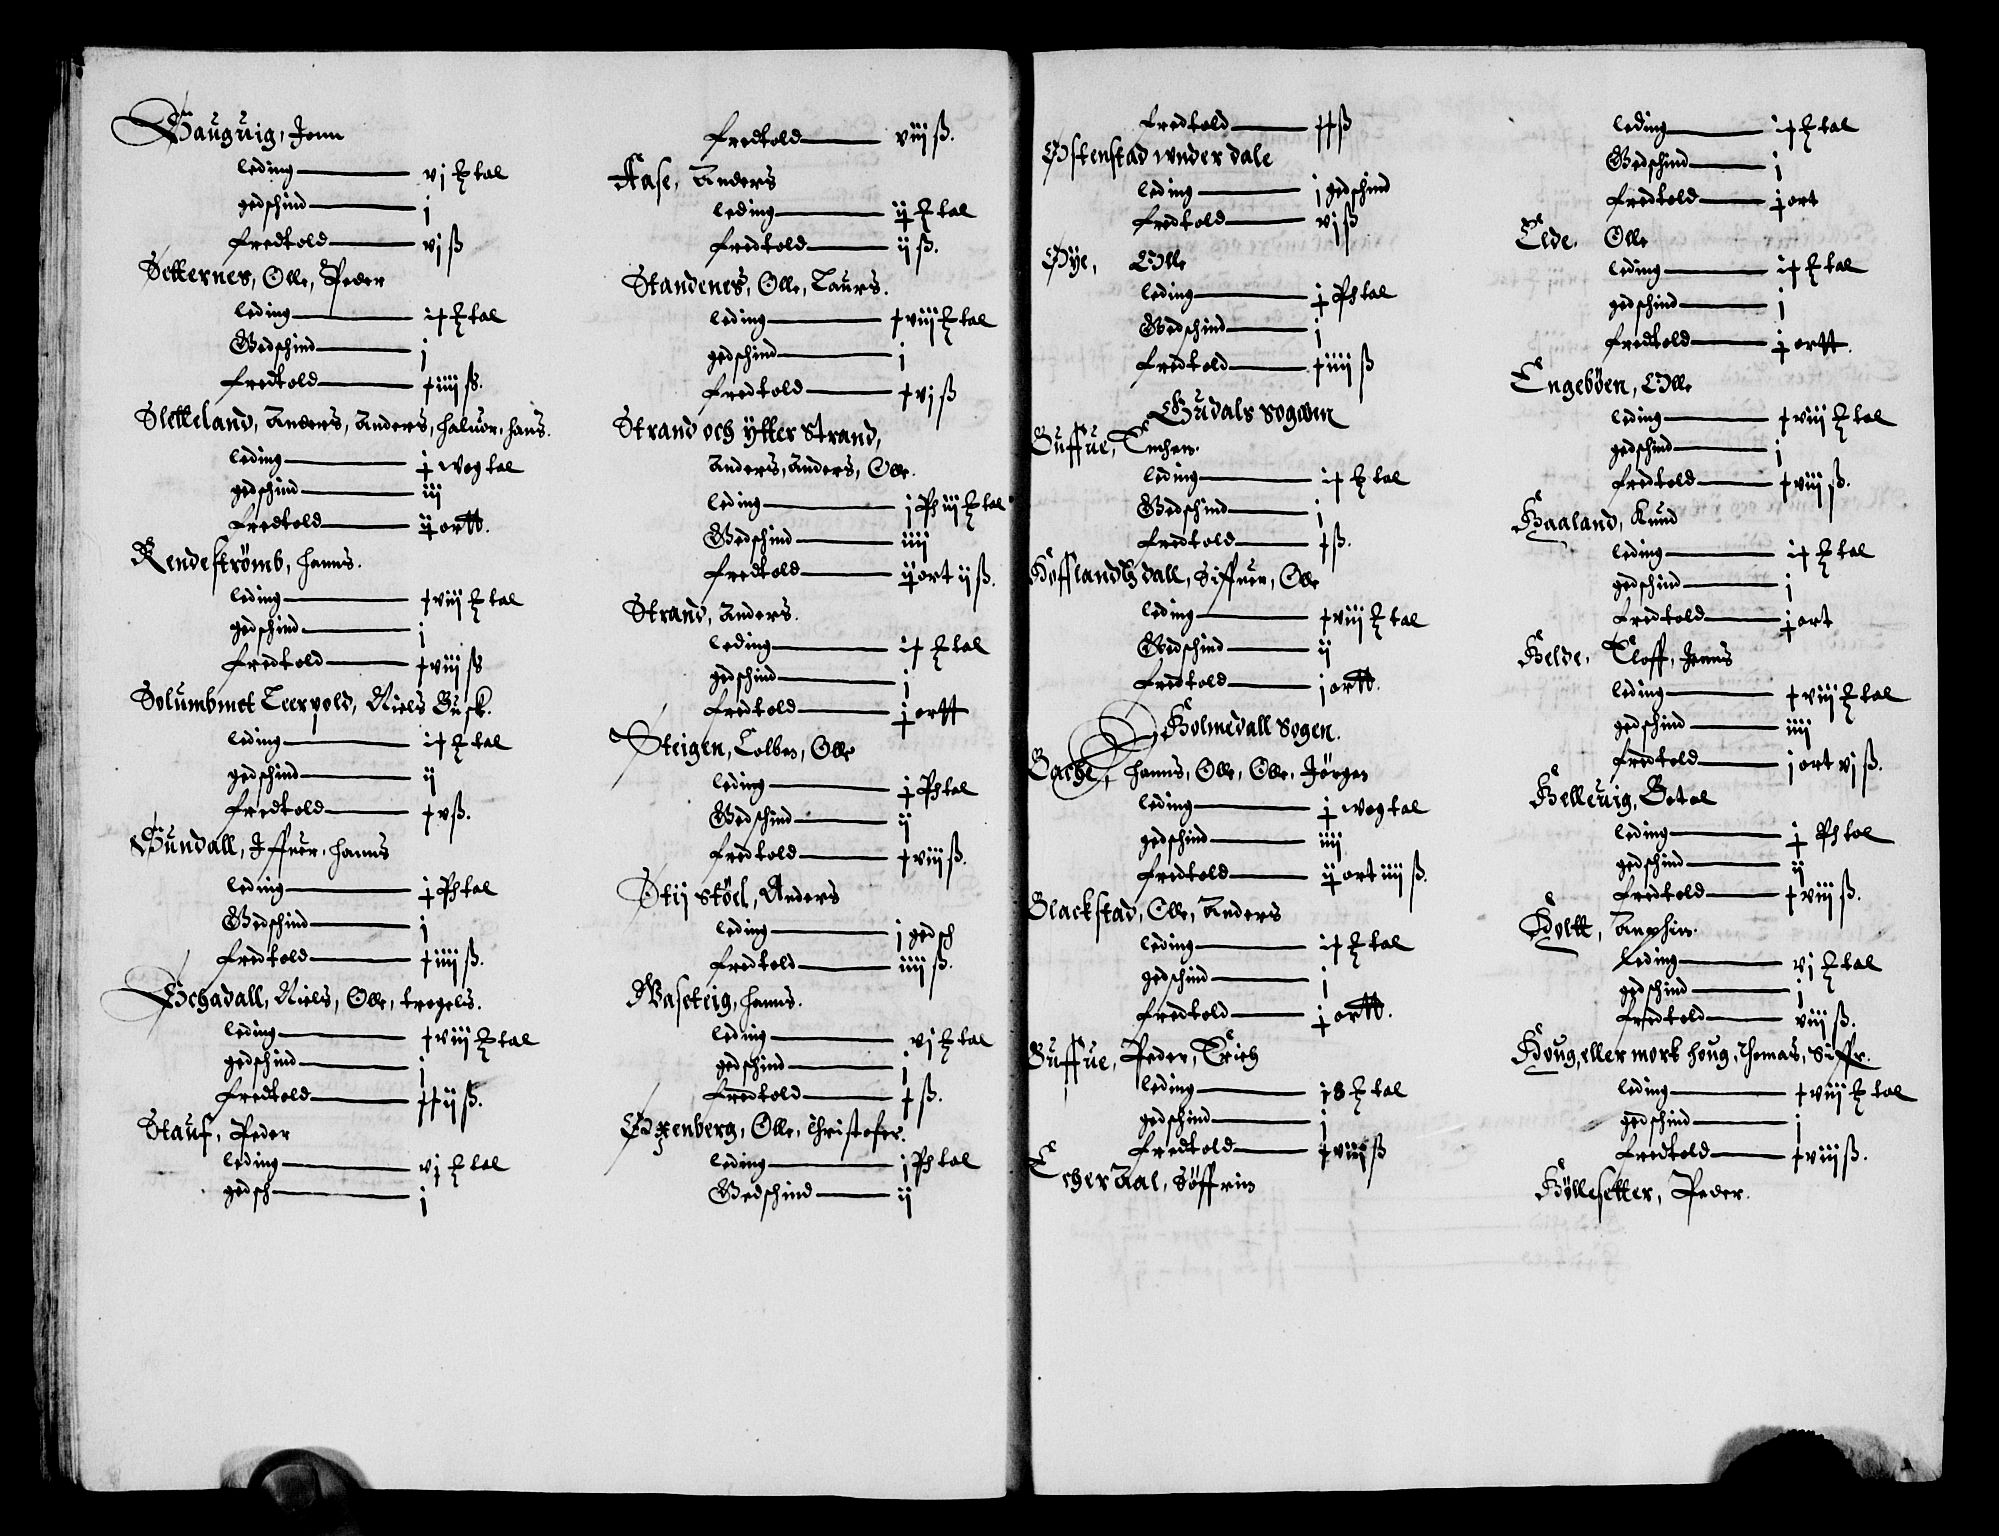 Haugüig, Jonn
leding vj ℔ tal
gedschind j
Fredtold vj ß
Setternes, Olle, Peder
leding i† ℔ tal
Gedschind j
Fredtold †iiij ß.
Sletteland, Anders, Anders, Haluor, Hans.
leding ɉ wog tal
gedschind iij
Fredtold ij ortt.
Rendeströmb, Hanns.
leding †viij ℔ tal
gedschind j
Fredtold †viij ß
Solumbmet Leerpold, Niels Busk.
leding i† ℔ tal
gedschind ij
Fredtold †v ß.
Gundall, Jffuer, Hanns
leding ɉ Ph tal
Gedschind j
Fredtold †iiij ß.
Schadall, Niels, Olle, trogels.
leding †viij ℔ tal
gedschind j
Fredtold ††ij ß.
Stauf, Peder
leding vj ℔ tal
gedsch j
Fredtold viij ß.
Aase, Anders
leding ij ℔ tal
Fredtold ij ß.
Standenes, Olle, Laurs.
leding †viij ℔ tal
gedschind j
Fredtold †vj ß
Strand och ytter Strand,
Anders, Anders, Olle.
leding j Ph iij ℔ tal
Gedschind iiij
Fredtold ij ort ij ß.
Strand, Anders.
leding i† ℔ tal
gedschind j
Fredtold ɉ ortt
Steigen, Colben, Olle
leding ɉ Ph tal
Gedschind ij
Fredtold †viij ß.
Stij stöel, Anders
leding j gedsch
Fredtold iiij ß.
Wasteig, Hanns.
leding vj ℔ tal
gedschind j
Fredtold † ß.
Oxenberg, Olle, Christofer.
leding j Ph tal
Gedschind ij
Fredtold †† ß
Østenstad wnder dale
leding j gedschind
Fredtold vj ß
Øye, Olle
leding ɉ Ph tal
Gedschind j
Fredtold †iiij ß
Gudals sogenn
Buffue,
leding i† ℔ tal
Gedschind j
Fredtold † ß.
Hofflandtz dall, Siffuer, Olle
leding †viij ℔ tal
Gedschind ij
Fredtold j ortt.
Holmedall Sogen.
Bache, Hanns, Olle, Olle, Jörgen
leding ɉ wog tal
gedschind iiij
Fredtold ij ort iiij ß.
Blackstad, Olle, Anders
leding i† ℔ tal
gedschind j
Fredtold ɉ ortt.
Buffue, Peder, Erich
leding j8 ℔ tal
gedschind j
Fredtold †viij ß
Echeraal, Söffrin
leding i† ℔ tal
Gedschind j
Fredtold ɉ ort
Elde. Olle
leding i† ℔ tal
gedschind j
Fredtold ɉ ortt.
Engebøen, Olle
leding †viij ℔ tal
gedschind j
Fredtold †viij ß.
Haaland, Knud
leding i† ℔ tal
gedschind j
Fredtold ɉ ort
Helde. Eloff, Jenns
leding †viij ℔ tal
gedschind iiij
Fredtold j ort vj ß.
Helleuig, Botel
leding ɉ Ph tal
gedschind ij
Fredtold †viij ß.
Holtt, Anphin.
leding vj ℔ tal
gedschind j
Fredtold viij ß.
Houg, eller mork houg, Thomas, Siffr.
leding †viij ℔ tal
gedschind j
Fredtold †viij ß.
Høllesetter, Peder.